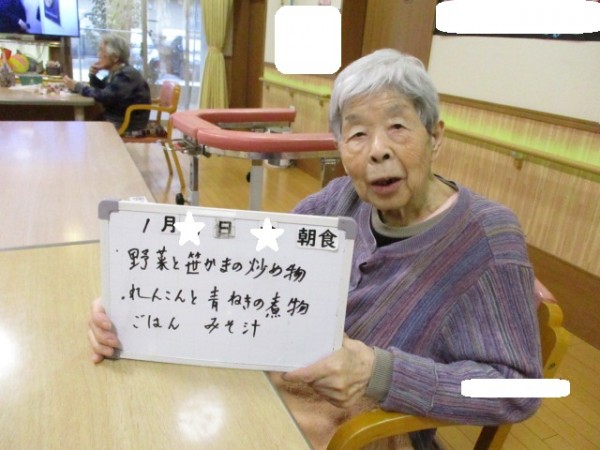 1月 日 朝食
・野菜と笹かまの炒め物
・れんこんと青ねぎの煮物
ごはん みそ汁